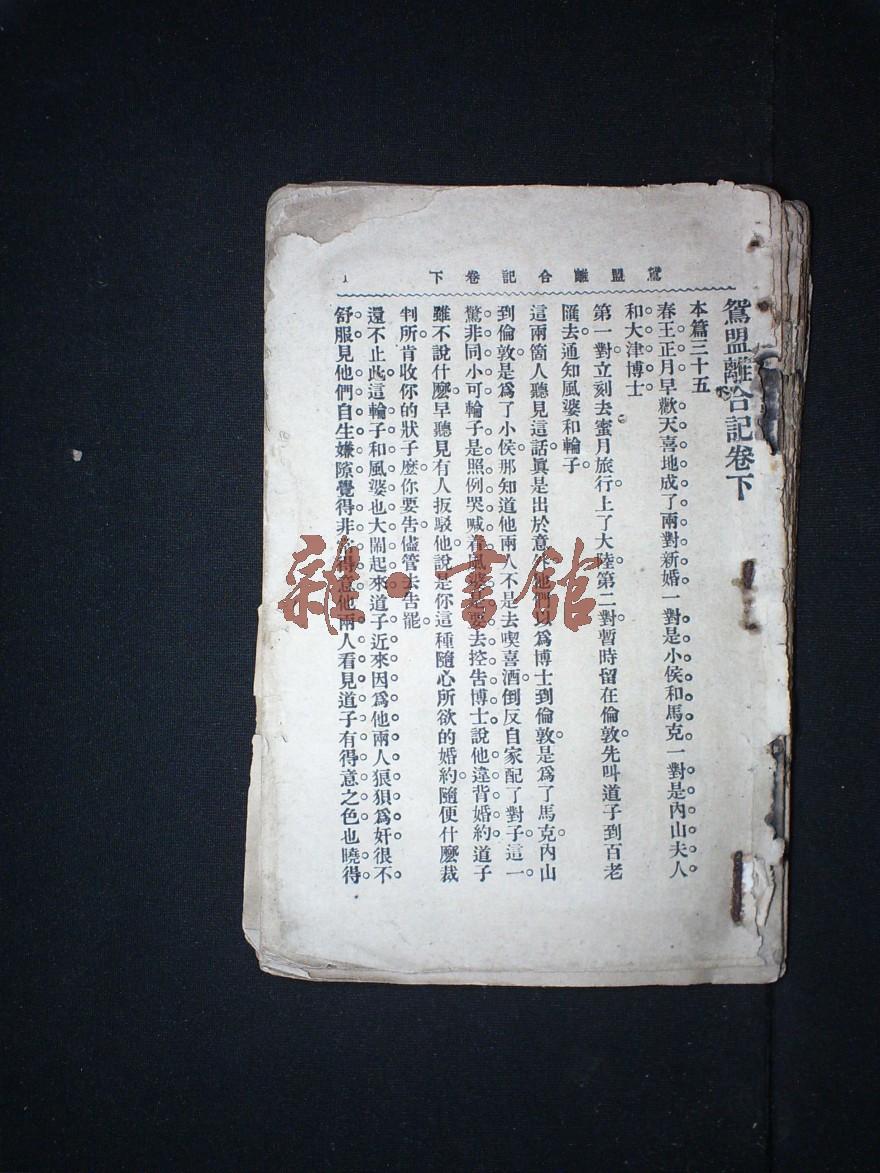 鴛盟離合記卷下
鴛盟離合記卷下
本篇三十五
春王正月早歡天喜地成了兩對新婚一對是小侯和馬克一對是內山夫人
和大津博士
第一對立刻去蜜月旅行上了大陸第二對暫時留在倫敦先叫道子到百老
匯去通知風婆和輪子
這兩箇人聽見這話眞是出於意他們以爲博士到倫敦是爲了馬克內山
到倫敦是爲了小侯那知道他兩人不是去喫喜酒倒反自家配了對子這一
驚非同小可輪子是照例哭喊着風婆是要去控告博士說他違背婚約道子
雖不說什麼早聽見有人扳駁他說是你這種隨心所欲的婚約隨便什麼裁
判所肯收你的狀子麽你要告儘管去告罷
還不止此這輪子和風婆也大鬧起來道子近來因爲他兩人狠狽爲奸很不
舒服見他們自生嫌隙覺得非得意他兩人看見道子有得意之色也曉得
雜·書館